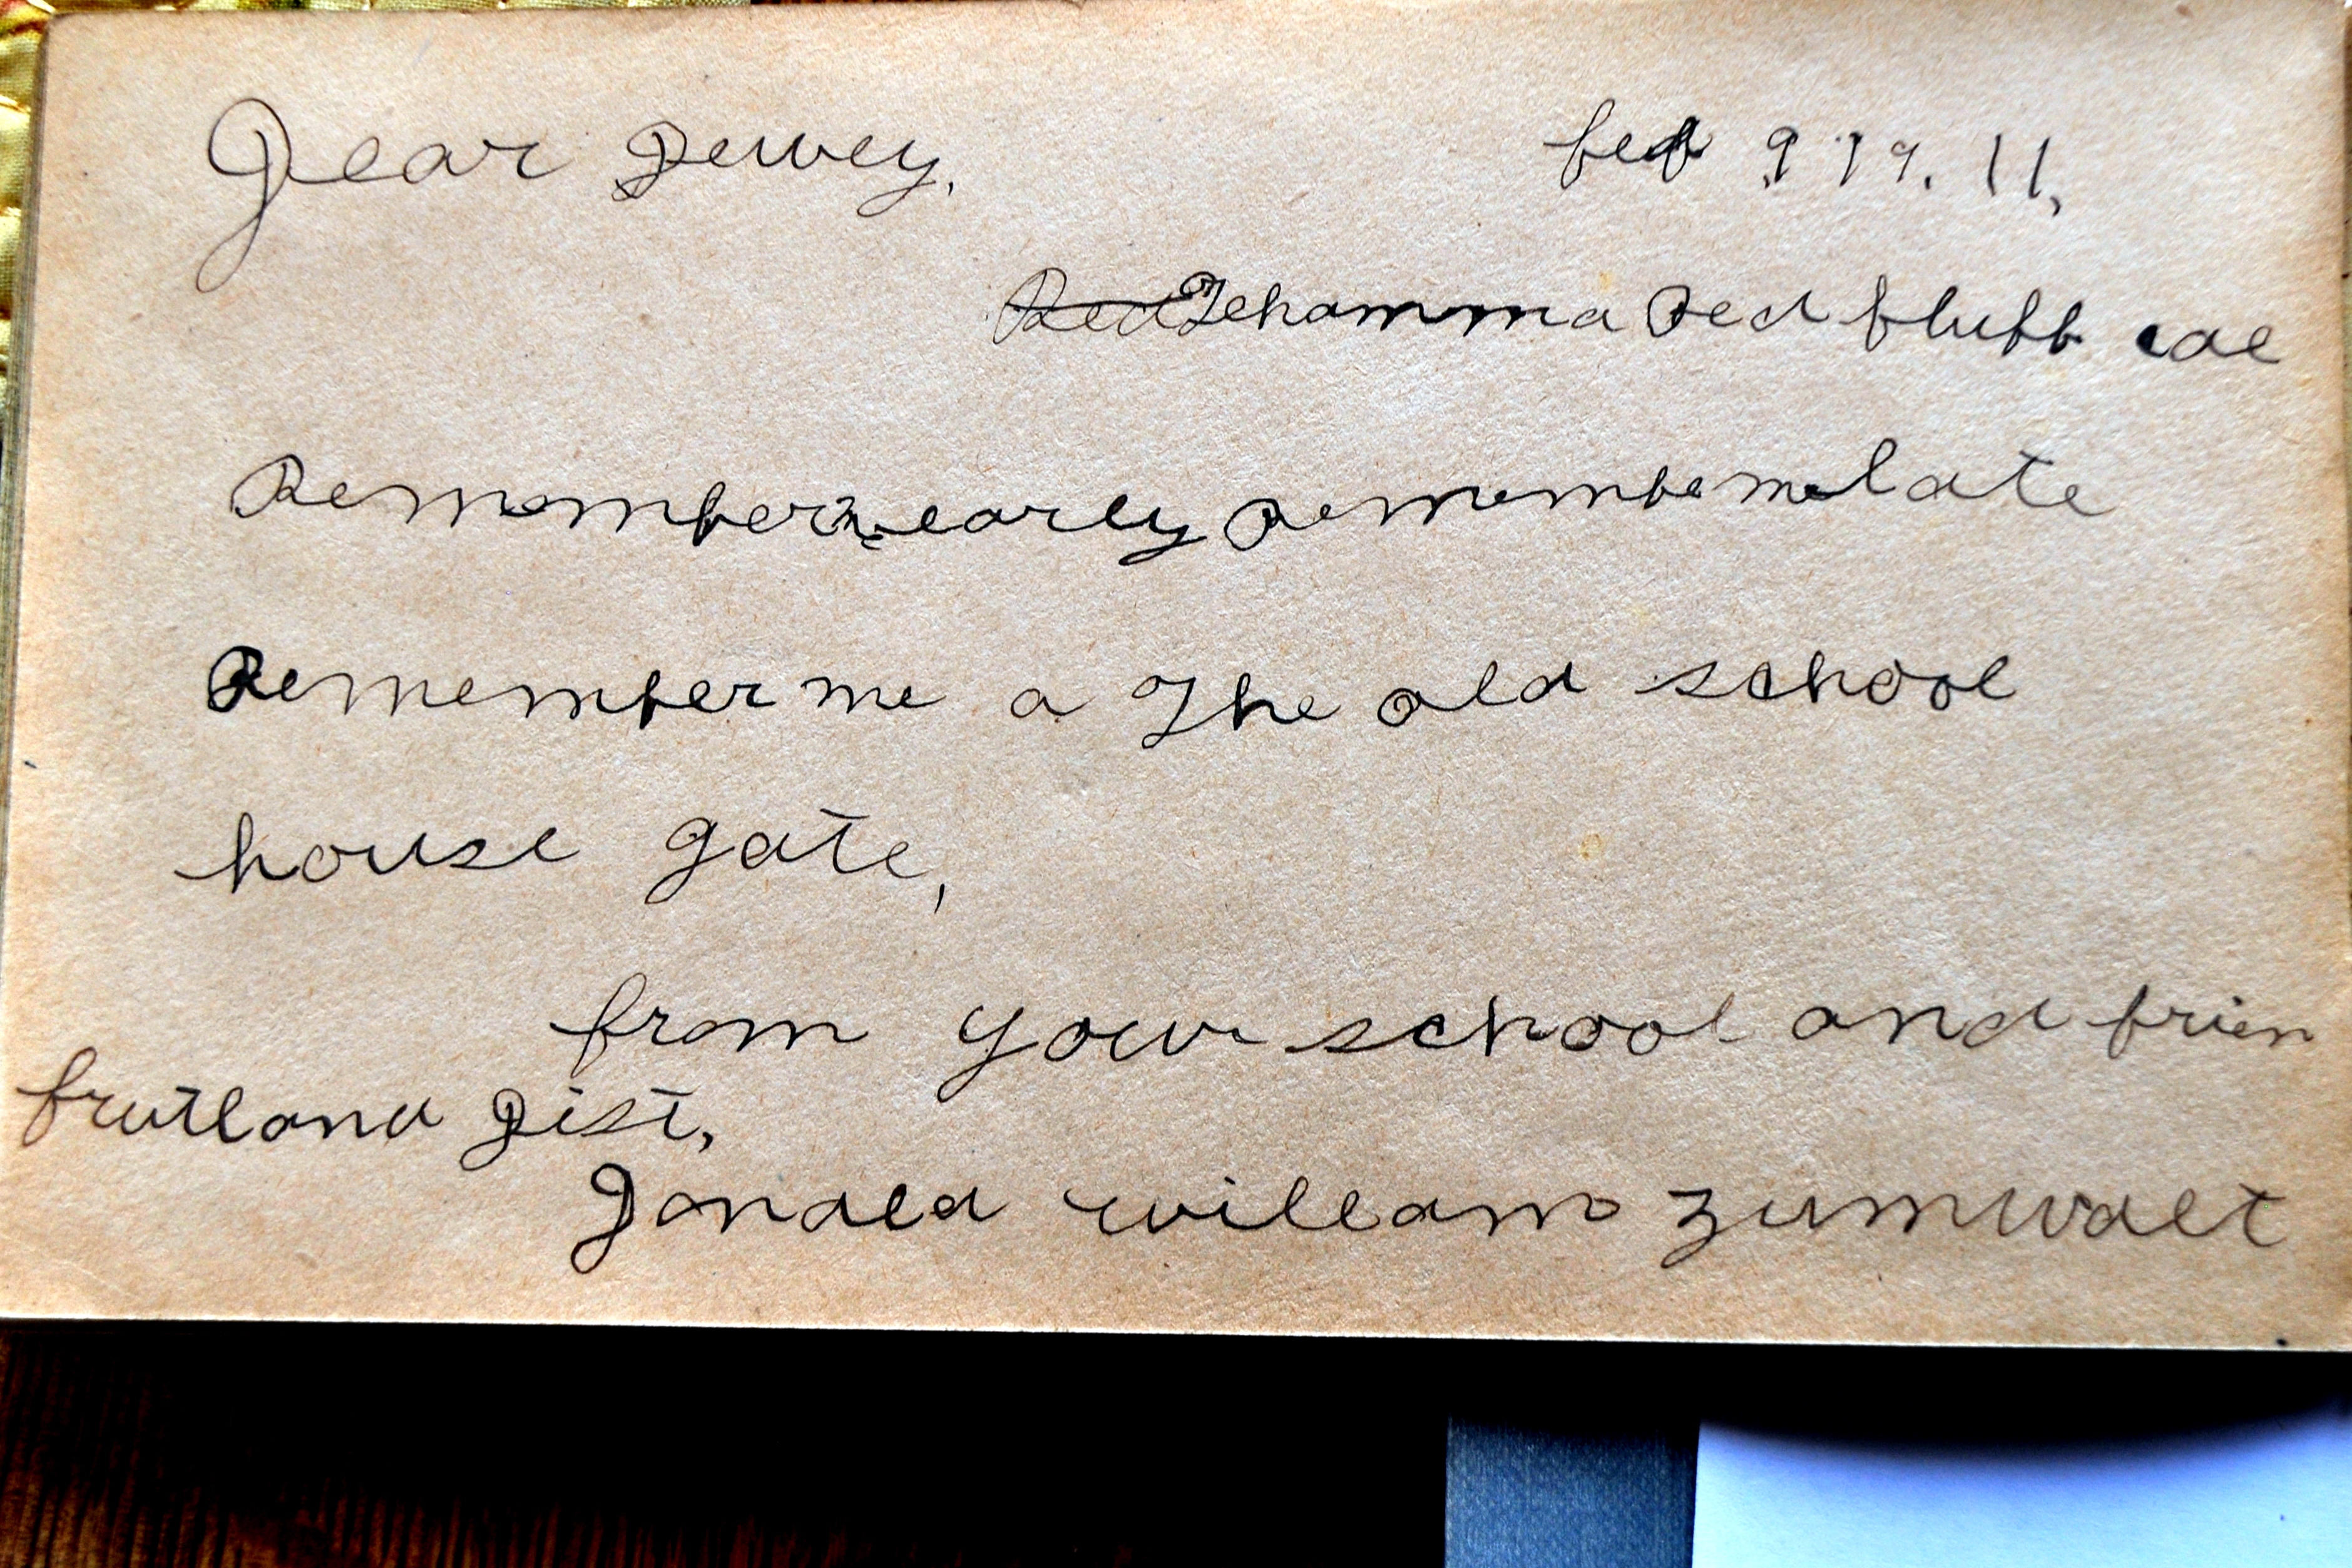 Dear Dewey,
feb 9 19.11,
Red Tehamma Red fluff cal
Remember me early Remembe me late
Remember me a The old school
house gate,
from your school and frien
frutland Dist,
Donald william zumwalt